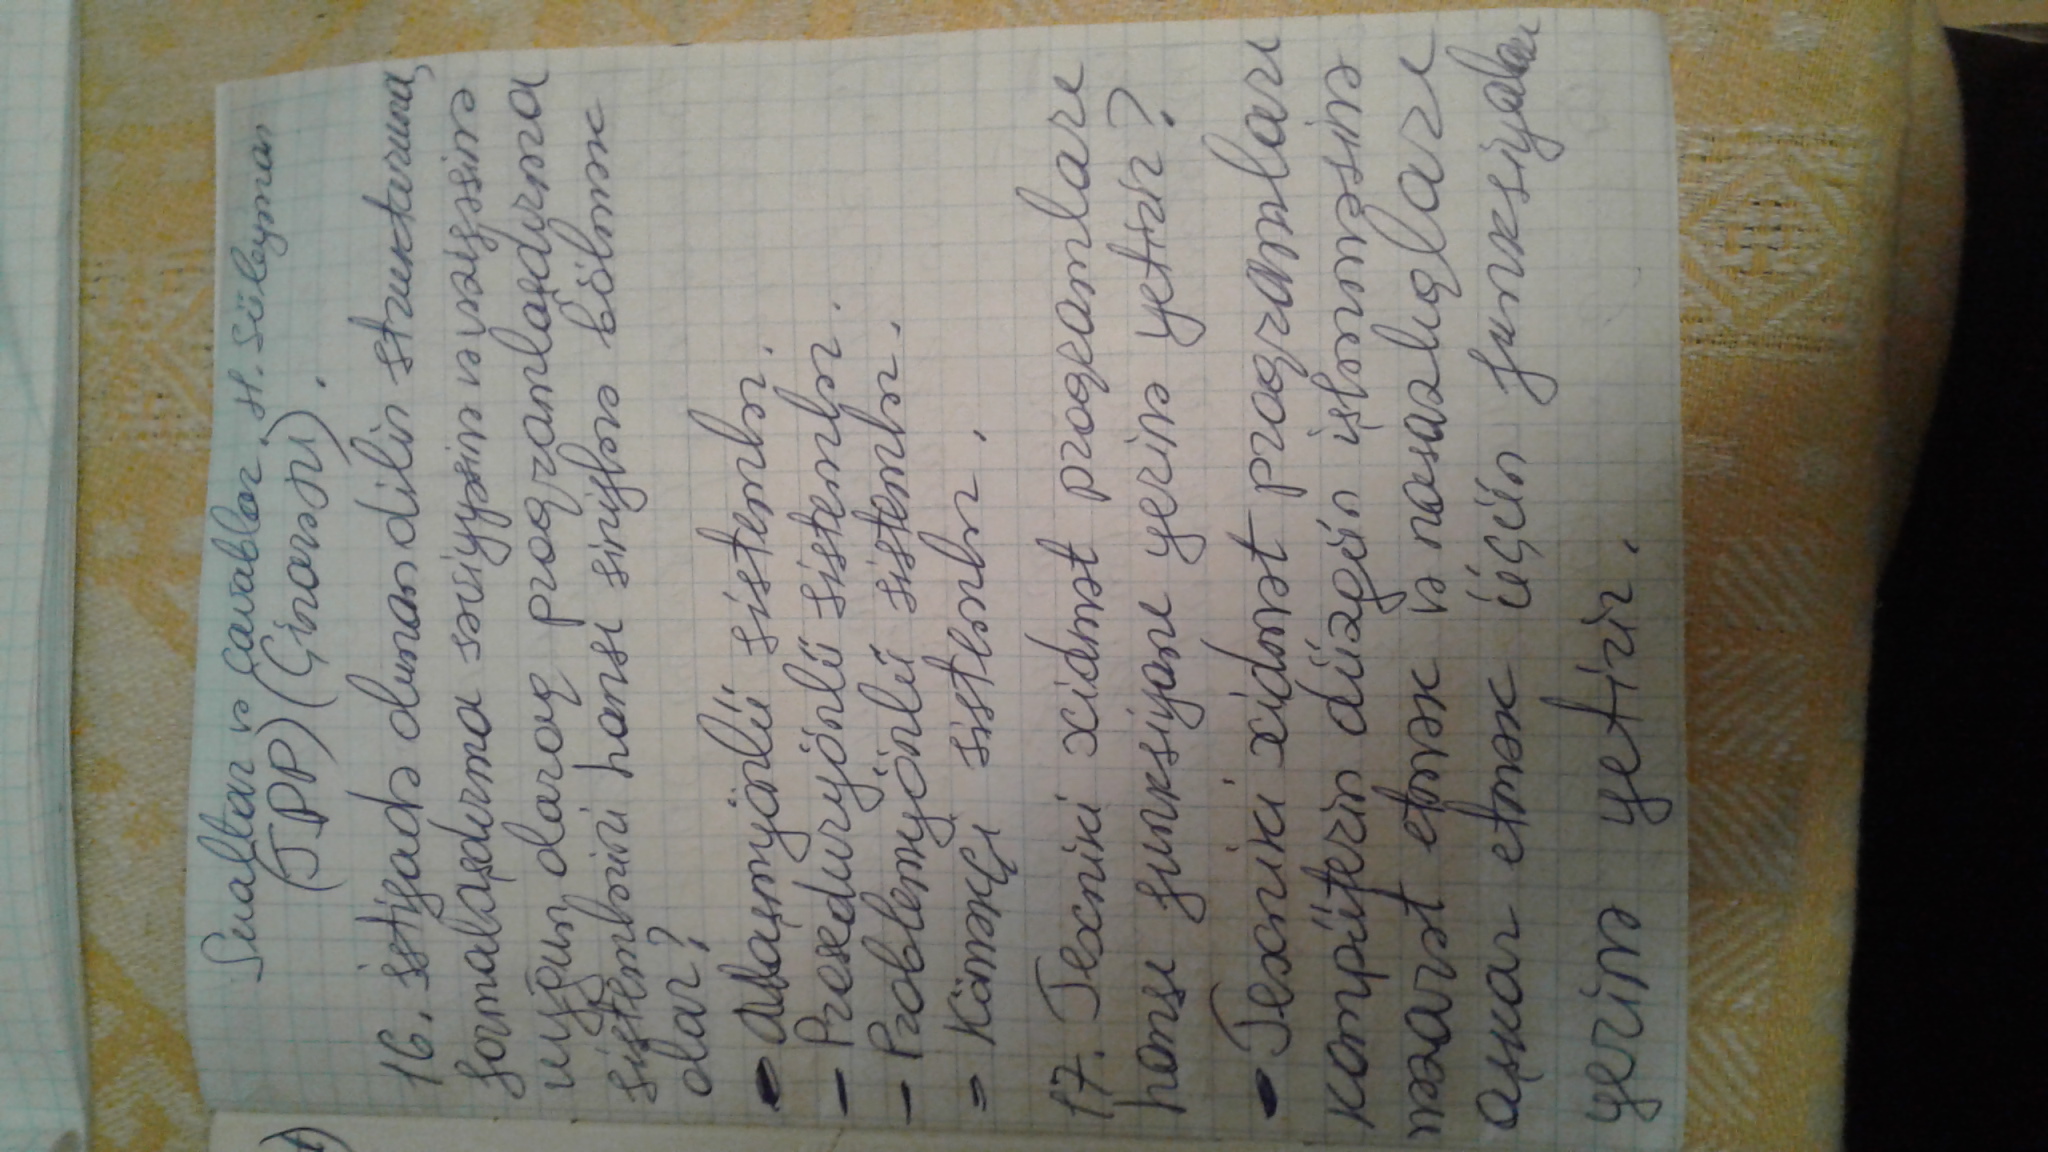 Suallar və cavablar. H. Süleyman
(TPP) (Çinarəsu).
16. İstifadə olunan dilin strukturuna,
formalaşdırma səviyyəsinə və vəzifəsinə
uyğun olaraq proqramlaşdırma
sistemlərini hansı siniflərə bölmək
olar?
- Maşınyönlü sistemlər.
- Proseduryönlü sistemlər.
- Problemyönlü sistemlər.
- Köməkçi sistemlər.
17. Texniki xidmət proqramları
hansı funksiyanı yerinə yetirir?
- Texniki xidmət proqramları
kompüterin düzgün işlənməsinə
nəzarət etmək və nasazlıqları
aşkar etmək üçün funksiyaları
yerinə yetirir.